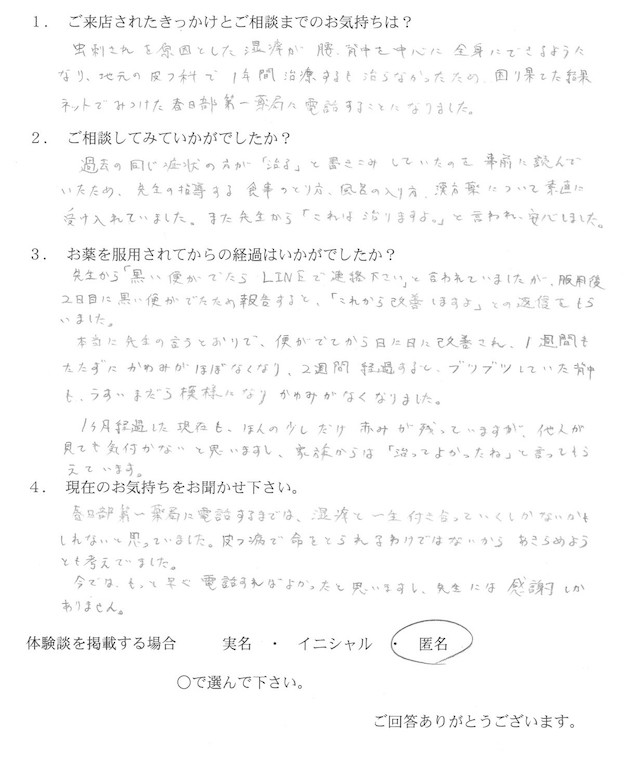 １． ご来店されたきっかけとご相談までのお気持ちは？
虫刺されを原因とした湿疹が腰、背中を中心に全身にできるように
なり、地元の皮フ科で1年間治療するも治らなかったため、困り果てた結果
ネットでみつけた春日部第一薬局に電話することになりました。
２． ご相談してみていかがでしたか？
過去の同じ症状の方が「治る」と書きこみしていたのを事前に読んで
いたため、先生の指導する食事のとり方、風呂の入り方、漢方薬について素直に
受け入れていました。また先生から「これは治りますよ。」と言われ、安心しました。
３． お薬を服用されてからの経過はいかがでしたか？
先生から「黒い便がでたらLINEで連絡下さい」と言われていましたが、服用後
2日目に黒い便がでたため報告すると、「これから改善しますよ」との返信をもら
いました。
本当に先生の言うとおりで、便がでてから日に日に改善され、1週間も
たたずにかゆみがほぼなくなり、2週間経過すると、ブツブツしていた背中
も、うすいまだら模様になりかゆみがなくなりました。
1ヶ月経過した現在も、ほんの少しだけ赤みが残っていますが、他人が
見ても気付かないと思いますし、家族からは「治ってよかったね」と言ってもら
えています。
４． 現在のお気持ちをお聞かせ下さい。
春日部第一薬局に電話するまでは、湿疹と一生付き合っていくしかないかも
しれないと思っていました。皮フ病で命をとられるわけではないからあきらめよう
とも考えていました。
今では、もっと早く電話すればよかったと思いますし、先生には感謝しか
ありません。
体験談を掲載する場合 実名 ・ イニシャル ・ 匿名
〇で選んで下さい。
ご回答ありがとうございます。